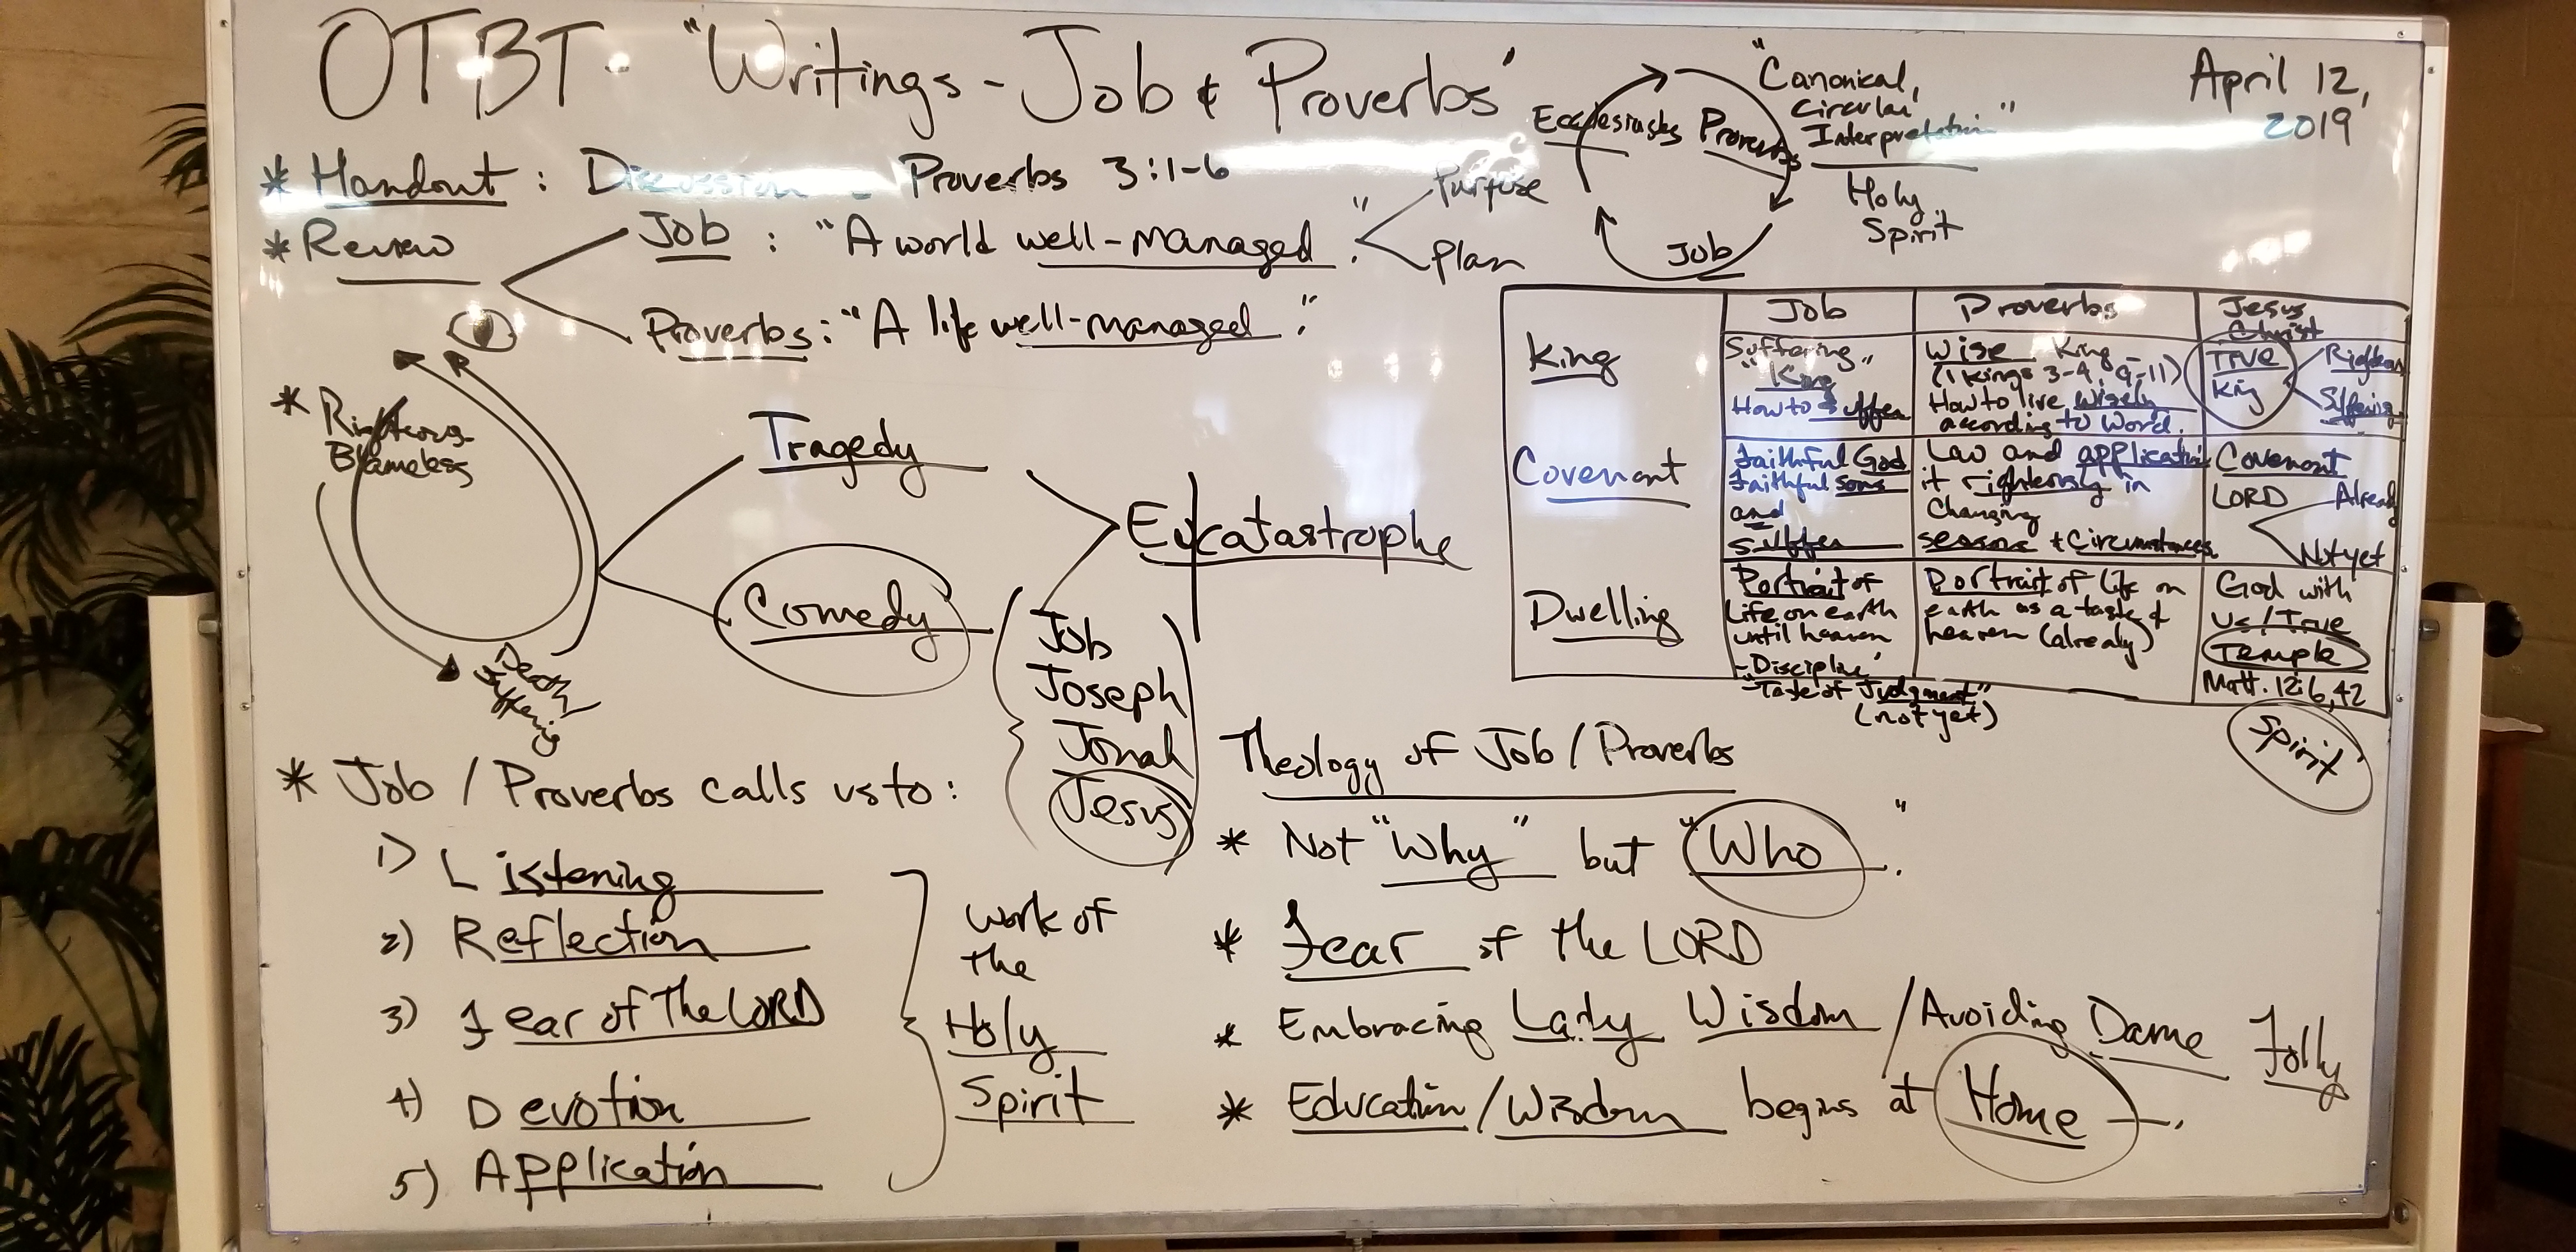 OTBT - "Writings - Job & Proverbs"
April 12,
2019
* Handout: Discussion - Proverbs 3:1-6
* Review
Job: "A world well-managed."
Purpose
Plan
Proverbs: "A life well-managed."
Ecclesiastes
Proverbs
Job
"Canonical,
Circular
Interpretation"
Holy
Spirit
Job
Proverbs
Jesus
Christ
King
"Suffering"
King
How to suffer
Wise King
(1 Kings 3-4, 9-11)
How to live wisely
according to Word.
True
King
Righteous
Suffering
Covenant
Faithful God
Faithful sons
and
suffer
Law and application
it righteously in
Changing
seasons + Circumstances
Covenant
LORD
Already
Not yet
Dwelling
Portrait of
Life on earth
until heaven
- Discipline
- "Taste of Judgment"
(not yet)
Portrait of life on
earth as a taste of
heaven (already)
God with
us / True
Temple
Matt. 12:6, 42
Spirit
* Righteous-
Blameless
Death/
Suffering
Tragedy
Comedy
Eucatastrophe
Job
Joseph
Jonah
Jesus
* Job / Proverbs calls us to:
1) Listening
2) Reflection
3) Fear of the LORD
4) Devotion
5) Application
Work of
the
Holy
Spirit
Theology of Job / Proverbs
* Not "Why" but "Who".
* Fear of the LORD
* Embracing Lady Wisdom / Avoiding Dame Folly
* Education / Wisdom begins at Home.